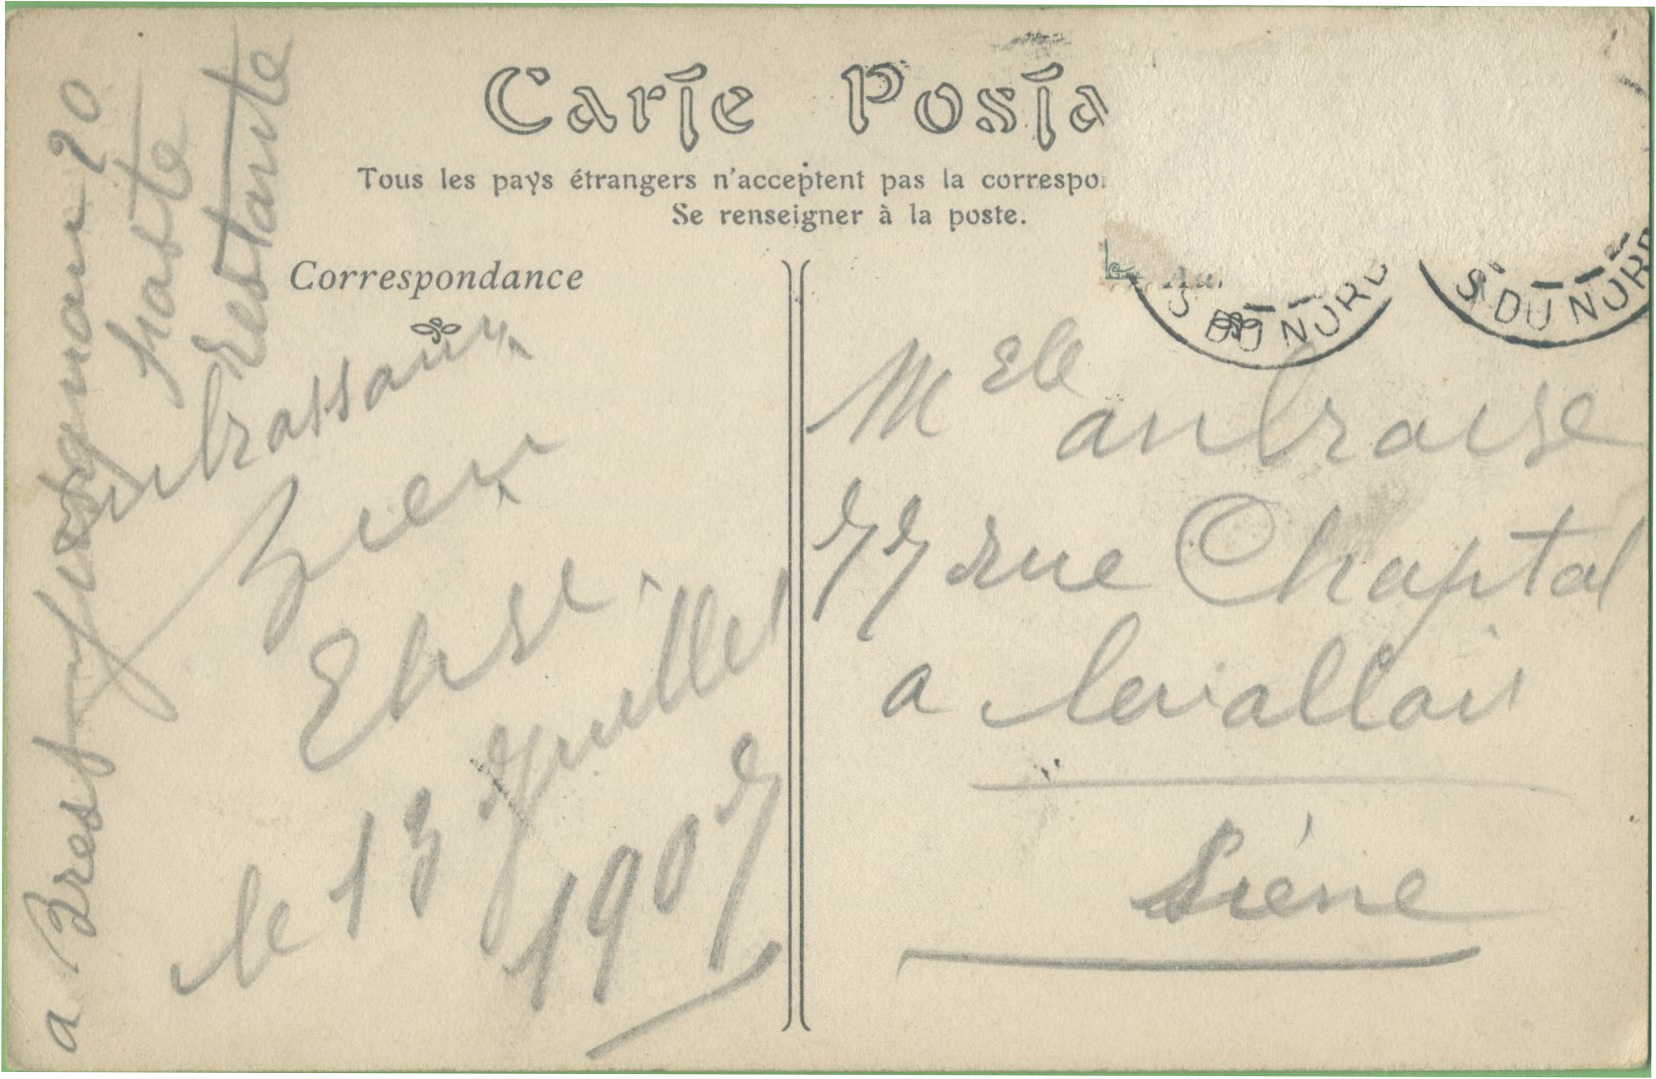 Carte Posta
Tous les pays étrangers n'acceptent pas la correspo
Se renseigner à la poste.
Correspondance
a Brest jusquau 20
poste
restante
embrassant
bien
Elise
le 13 Juillet
1907
Melle anbraise
77 rue Chaptal
a levallois
Siéne
S DU NORD
S DU NORD